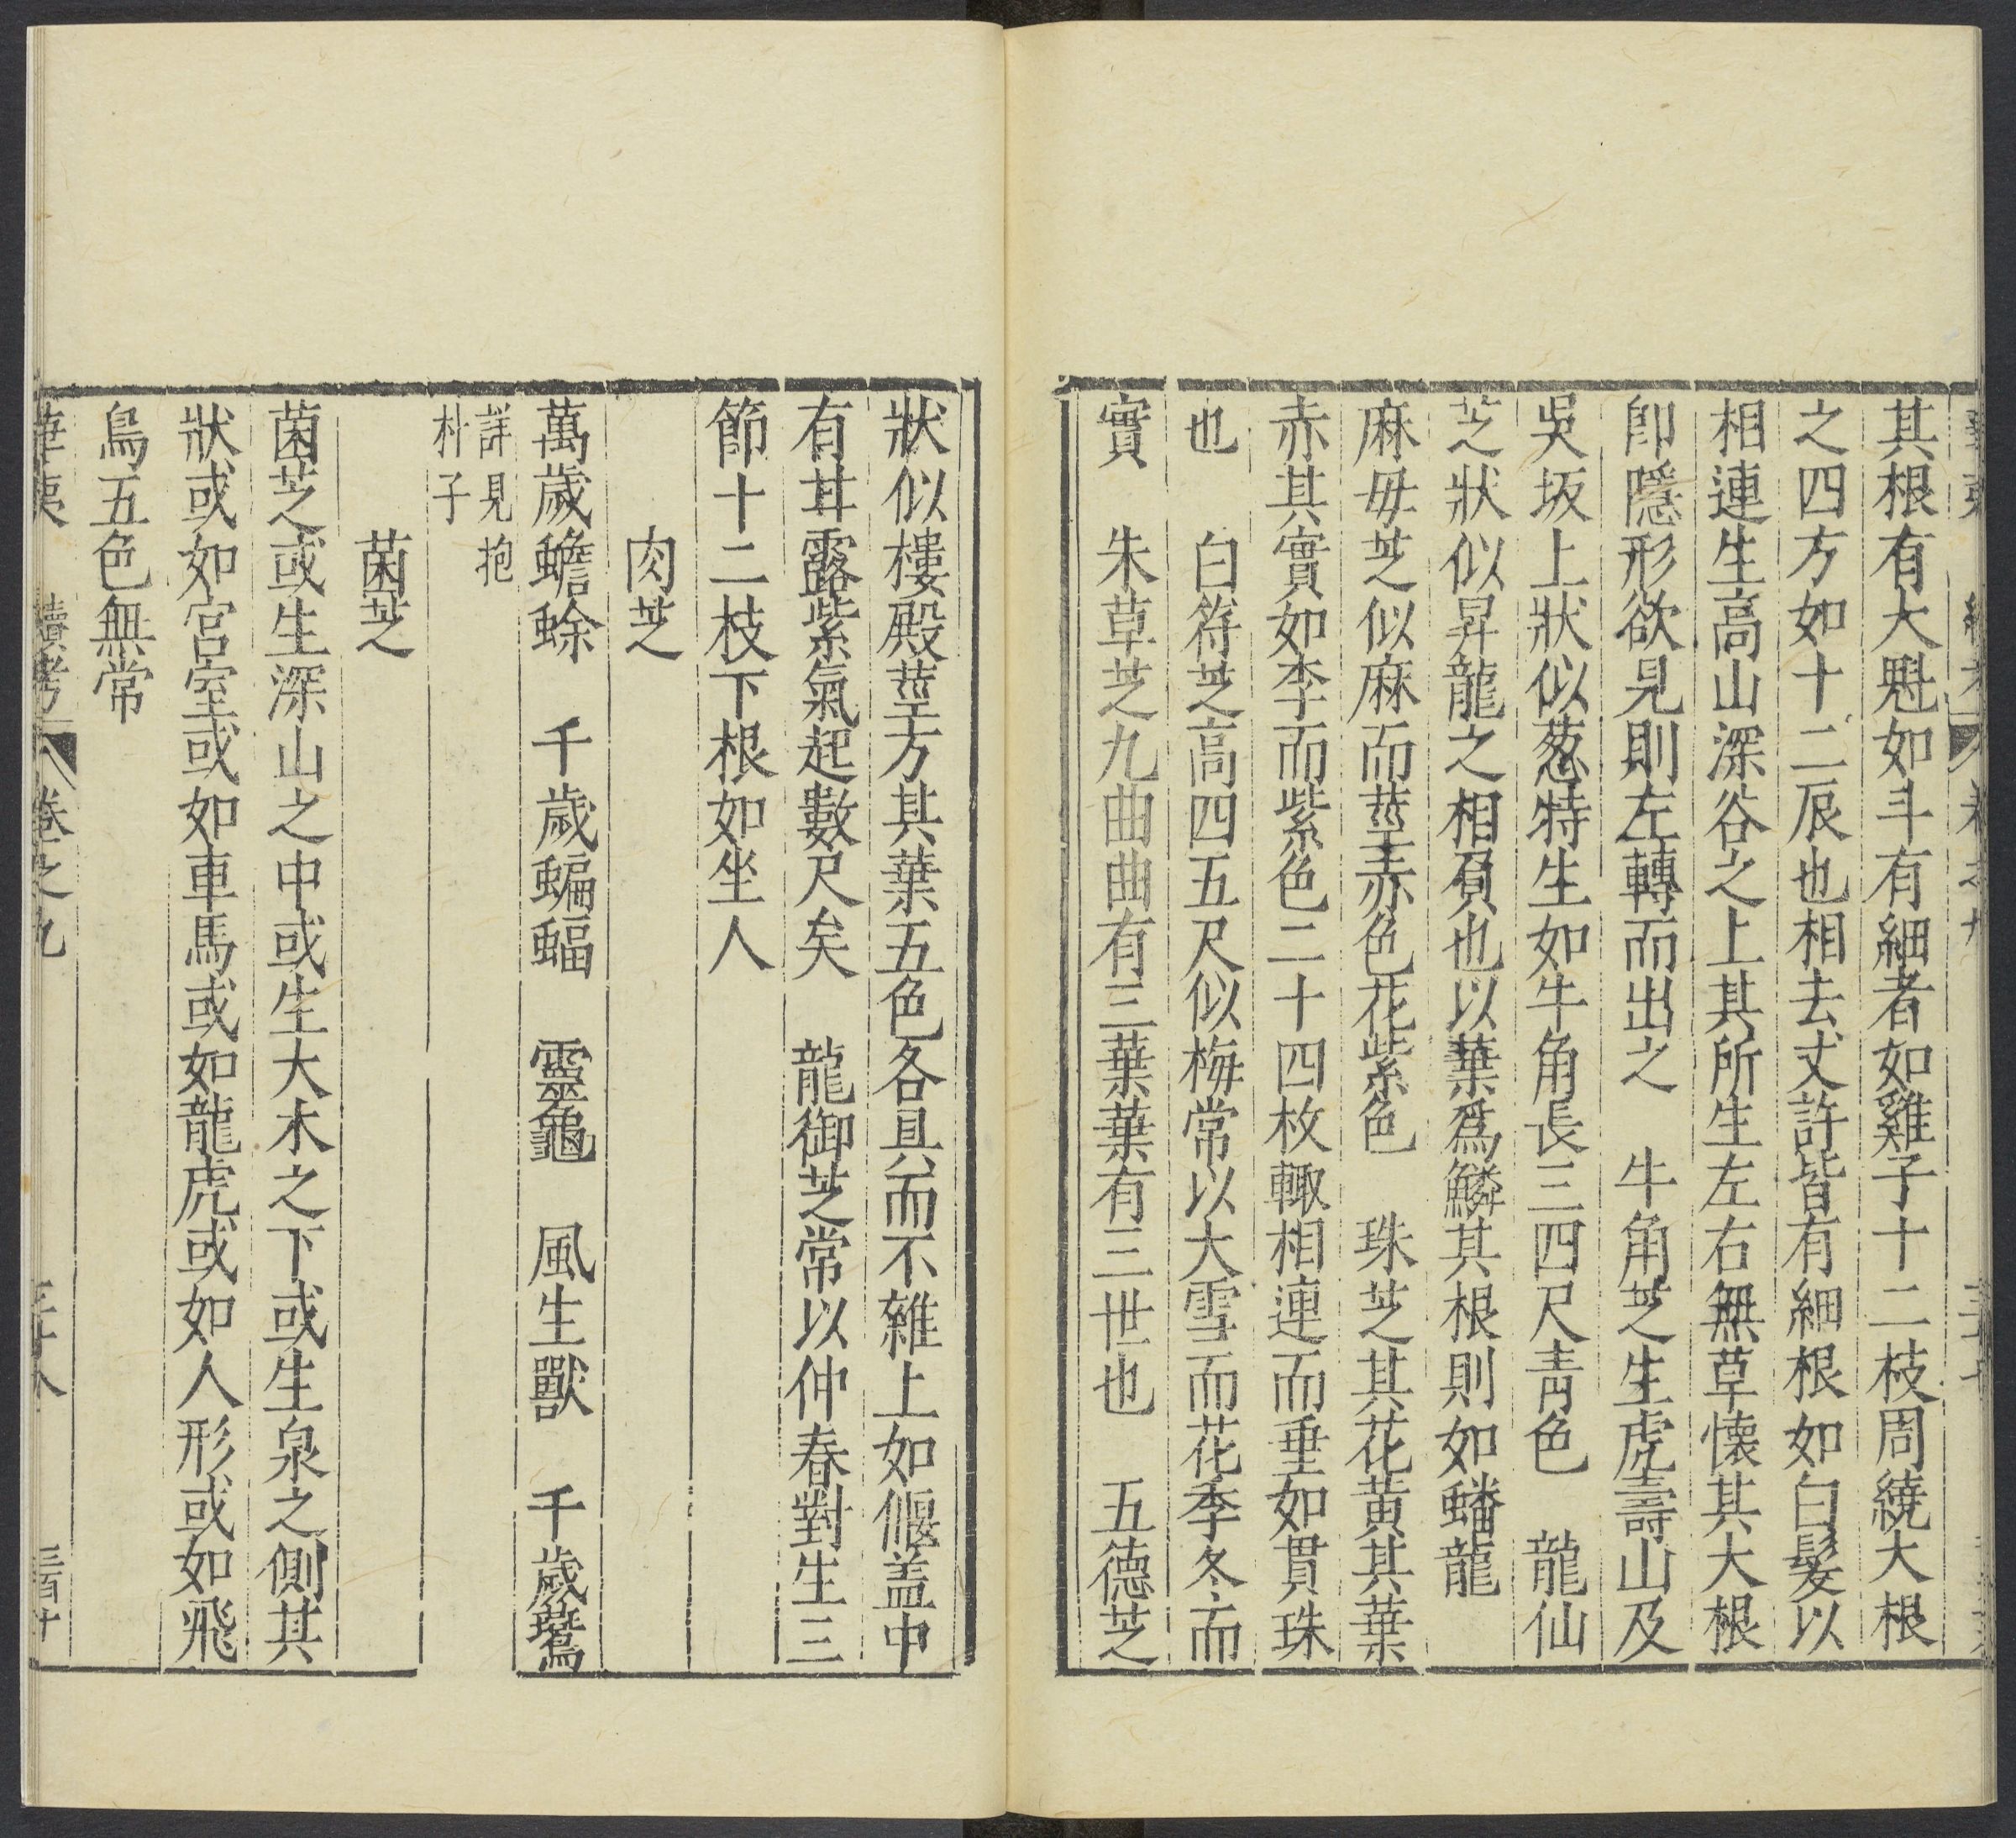 其根有大魁如斗有細者如雞子十二枝周繞大根
之四方如十二辰也相去丈許皆有細根如白髮以
相連生高山深谷之上其所生左右無草懷其大根
卽隱形欲見則左轉而出之　牛角芝生虎壽山及
吳坂上狀似葱特生如牛角長三四尺靑色　龍仙
芝狀似昇龍之相負也以葉爲鱗其根則如蟠龍
麻毋芝似麻而莖赤色花紫色　珠芝其花黃其葉
赤其實如李而紫色二十四枚輙相連而垂如貫珠
也　白符芝高四五尺似梅常以大雪而花季冬而
實　朱草芝九曲曲有三葉葉有三世也　五德芝
狀似樓殿莖方其葉五色各具而不雜上如偃盖中
有甘露紫氣起數尺矣　龍御芝常以仲春對生三
節十二枝下根如坐人
肉芝
萬歲蟾蜍　千歲蝙蝠　靈龜　風生獸　千歲鷰
詳見抱
朴子
菌芝
菌芝或生深山之中或生大木之下或生泉之側其
狀或如宮室或如車馬或如龍虎或如人形或如飛
鳥五色無常
華夷　續考　卷之九